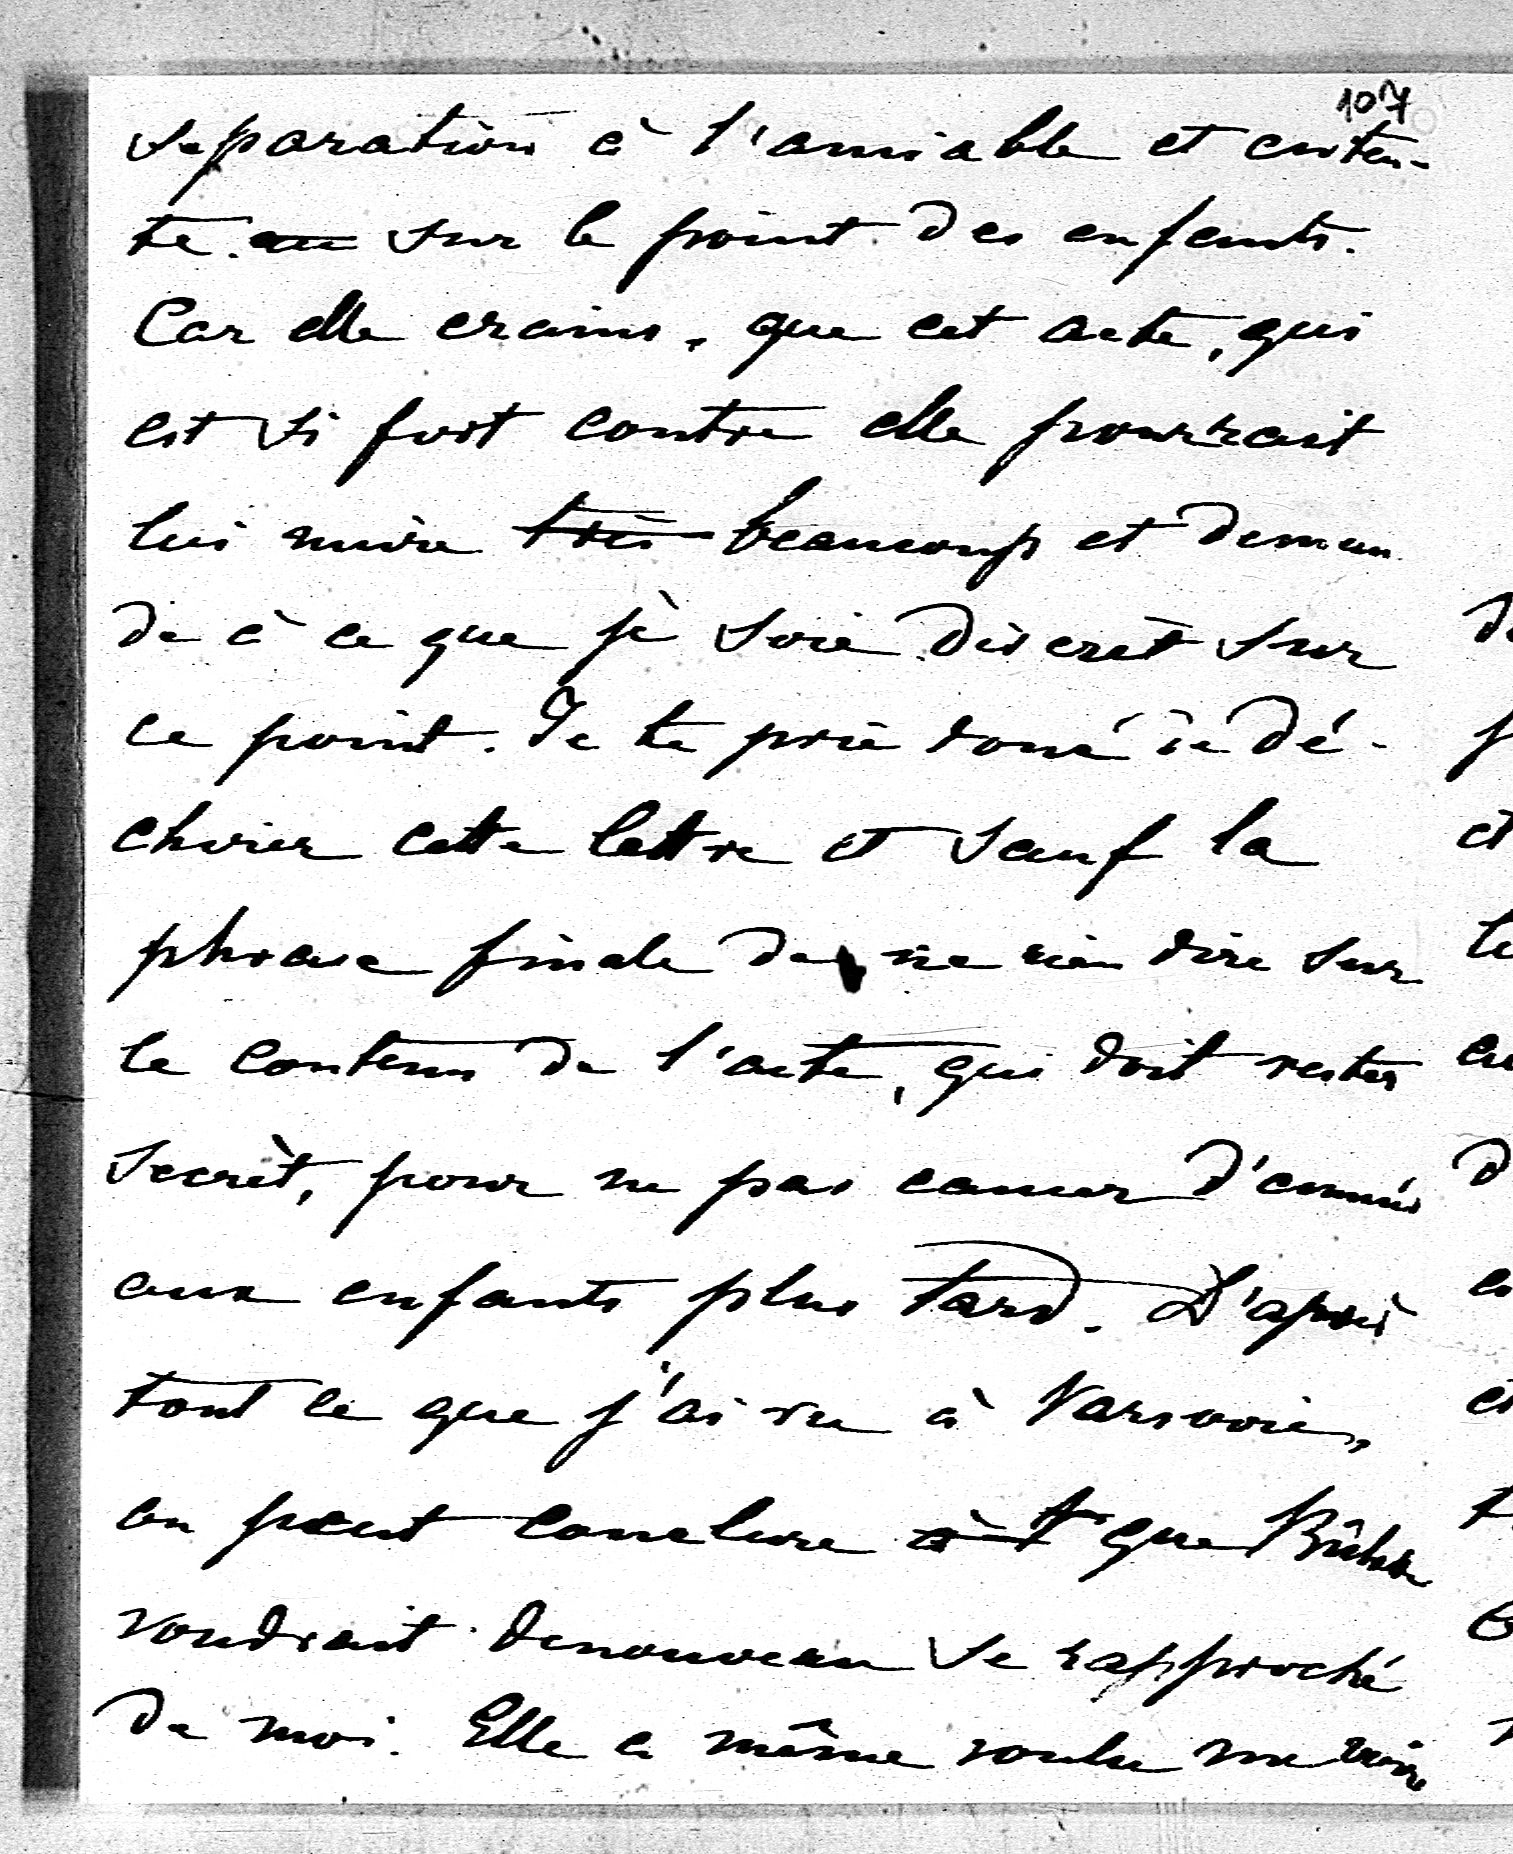 107
separation à l'amiable et enten-
te. au sur le point des enfants.
Car elle crains, que cet acte, qui
est si fort contre elle pourrait
lui nuire très beaucoup et deman
de à ce que je soie discrèt sur
ce point. Je te prie donc de dé-
chirer cette lettre et sauf la
phrase finale de ne rien dire sur
le contenu de l'acte, qui doit rester
secrèt, pour ne pas causer d'ennuis
aux enfants plus tard. D'après
tout ce que j'ai vu à Varsovie,
on peut conclure à t que
voudrait denouveau se rapproché
de moi. Elle a même voulu me